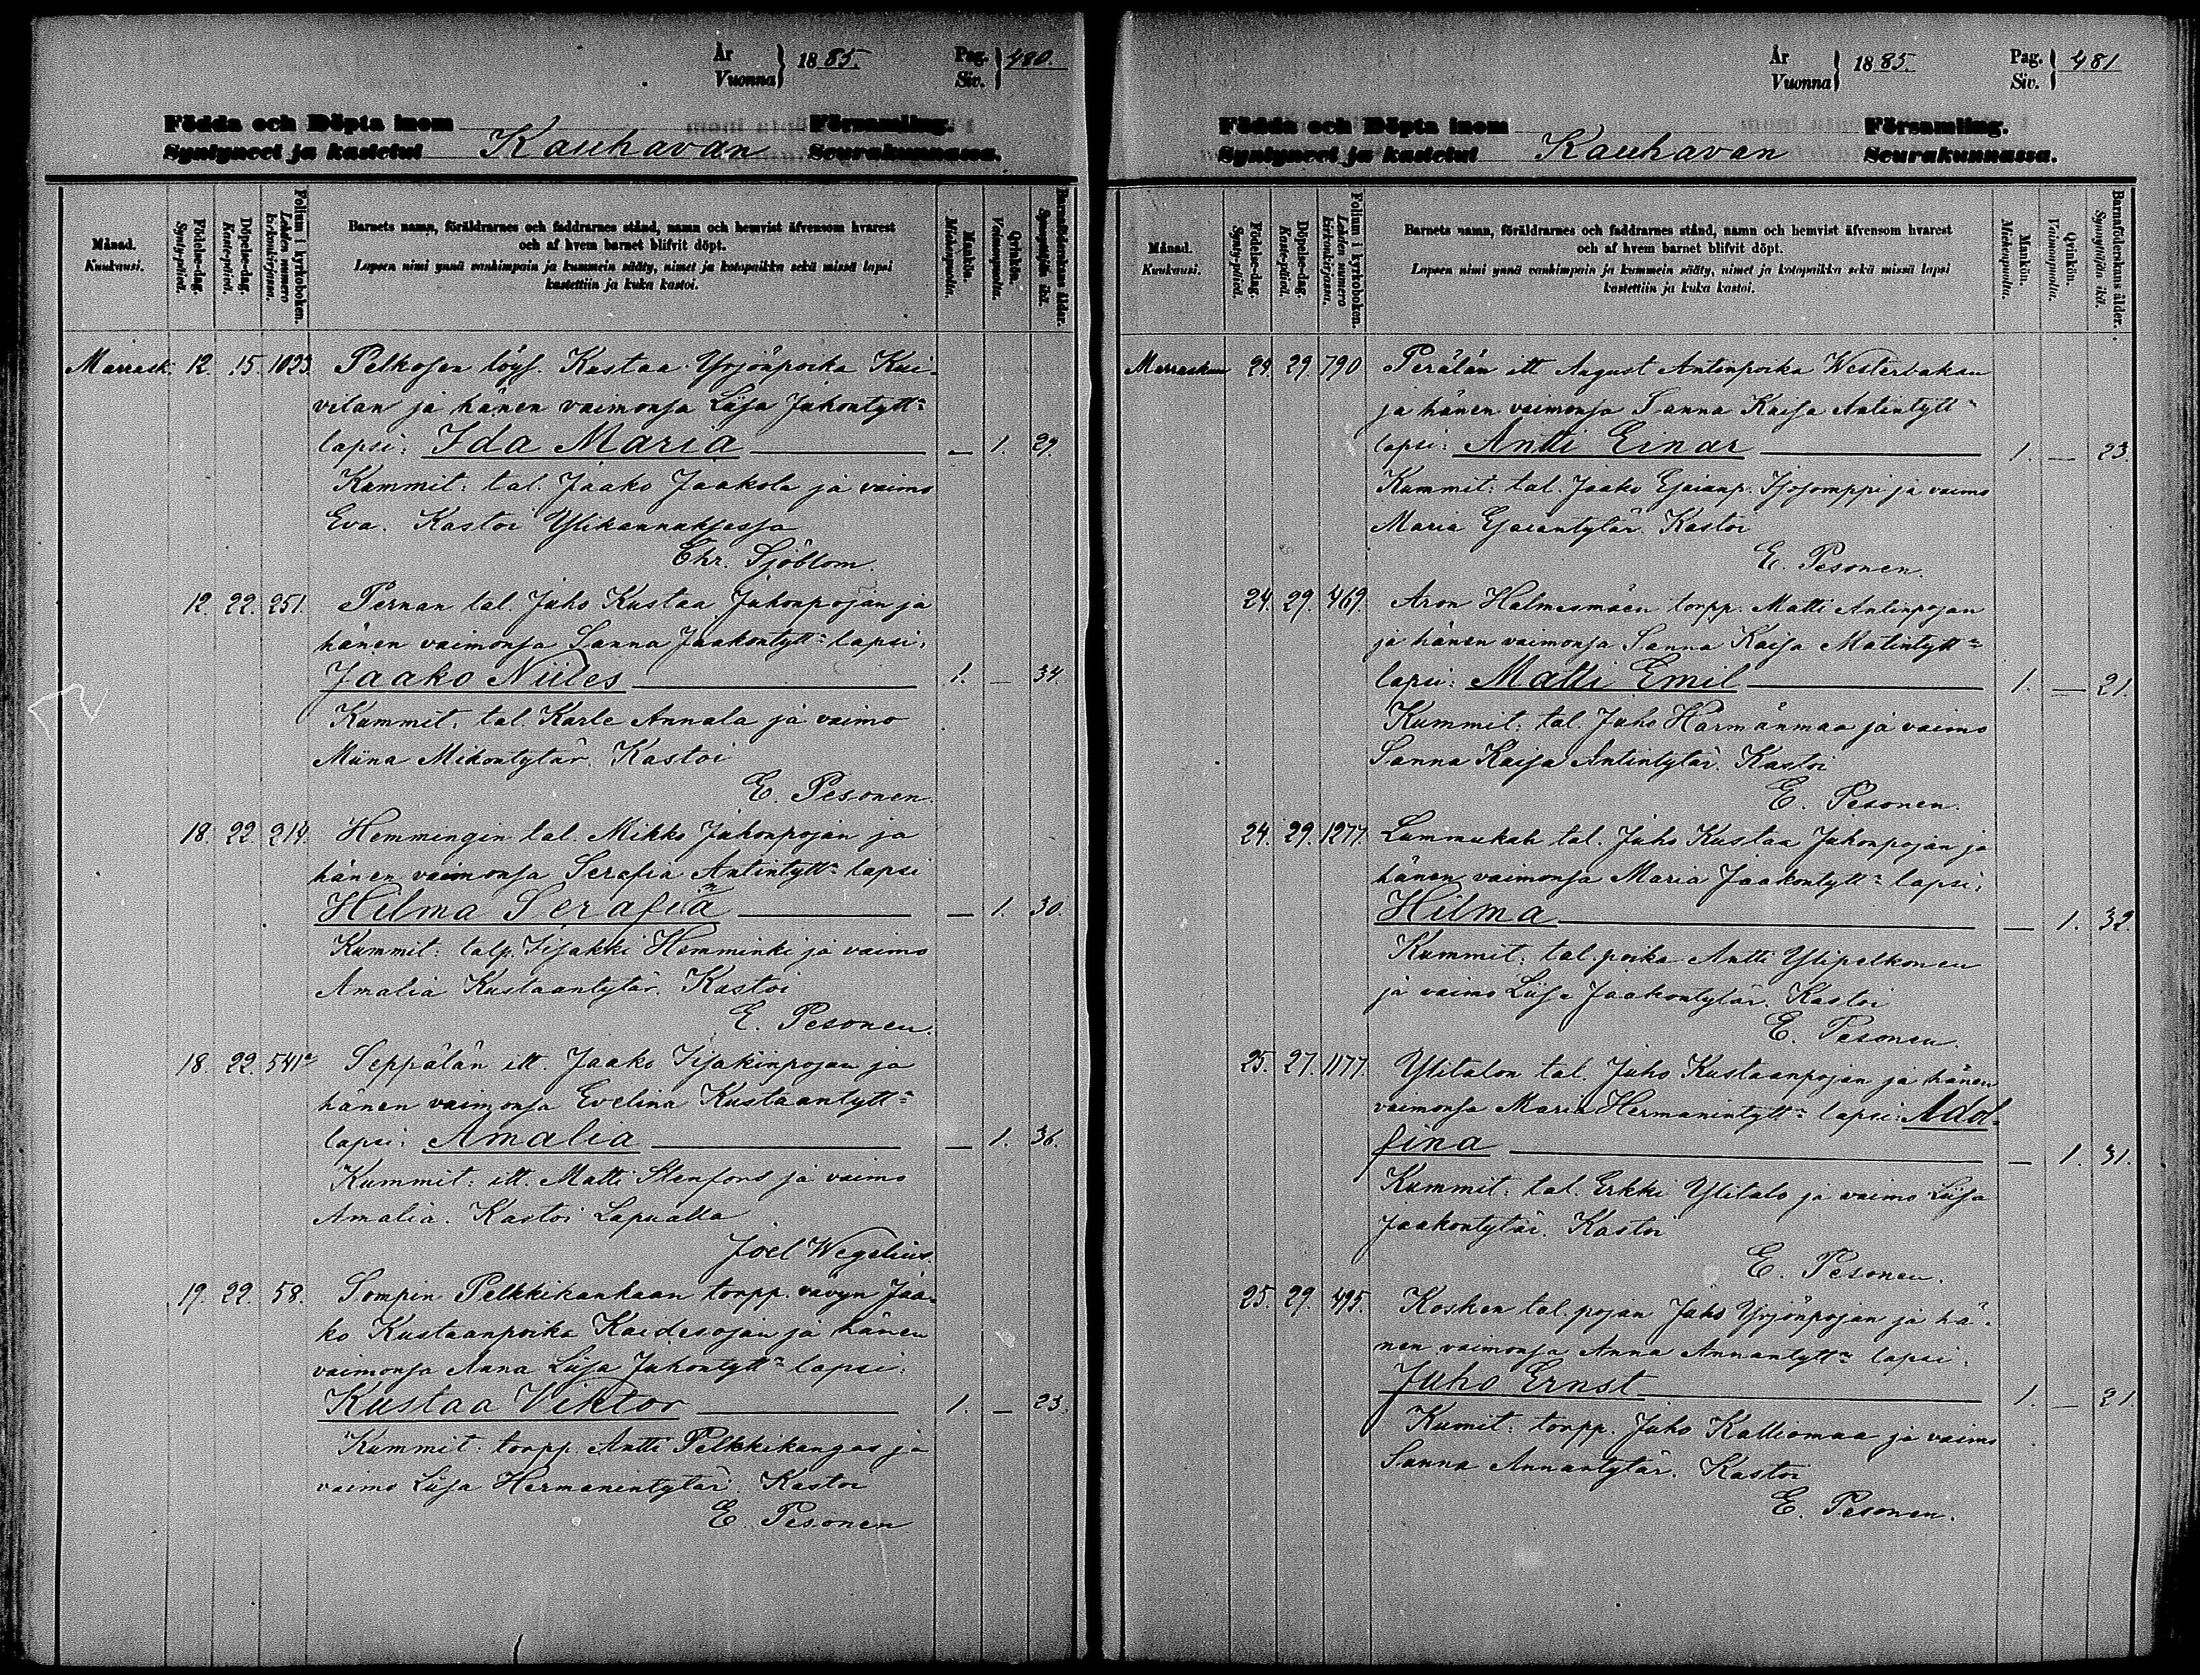 År
Vuonna } 1885.
Pag.
Siv. } 480.
Födda och Döpta inom Församling.
Syntyneet ja kastetut Kauhavan Seurakunnassa.
Månad.
Kuukausi.
Födelse-dag.
Synty-päivä.
Döpelse-dag.
Kaste-päivä.
Folium i kyrkoboken.
Lehden numero kirkonkirjassa.
Barnets namn, föräldrarnes och faddrarnes stånd, namn och hemvist äfvensom hvarest
och af hvem barnet blifvit döpt.
Lapsen nimi ynnä vanhimpain ja kummein sääty, nimet ja kotopaikka sekä missä lapsi
kastettiin ja kuka kastoi.
Mankön.
Miehenpuolta.
Qvinkön.
Vaimonpuolta.
Barnaföderskans ålder.
Synnyttäjän ikä.
Marrask. 12. 15. 1033 Pelkosen löys. Kustaa Yrjönpoika Kui-
vilan ja hänen vaimonsa Liisa Juhontytt:n
lapsi: Ida Maria — 1. 29.
Kummit: tal. Jaako Jaakola ja vaimo
Eva. Kastoi Ylikannuksessa
Chr. Sjöblom.
12. 22. 251. Pernan tal. Juho Kustaa Juhonpojan ja
hänen vaimonsa Sanna Jaakontytt:n lapsi:
Jaako Niiles 1. — 34.
Kummit: tal. Karle Annala ja vaimo
Miina Mikontytär. Kastoi
E. Pesonen.
18. 22. 214. Hemmingin tal. Mikko Juhonpojan ja
hänen vaimonsa Serafia Antintytt:n lapsi
Hilma Serafia — 1. 30.
Kummit: talp. Iisakki Hemminki ja vaimo
Amalia Kustaantytär. Kastoi
E. Pesonen.
18. 22. 541a Seppälän itt. Jaako Iisakinpojan ja
hänen vaimonsa Evelina Kustaantytt:n
lapsi: Amalia — 1. 36.
Kummit: itt. Matti Stenfors ja vaimo
Amalia. Kastoi Lapualla
Joel Wegelius.
19. 22. 58. Sompin Pelkkikankaan torpp. vävyn Jaa-
ko Kustaanpoika Kaidesojan ja hänen
vaimonsa Anna Liisa Juhontytt:n lapsi:
Kustaa Viktor 1. — 23.
Kummit: torpp. Antti Pelkkikangas ja
vaimo Liisa Hermanintytär. Kastoi
E. Pesonen
År
Vuonna } 1885.
Pag.
Siv. } 481
Födda och Döpta inom Församling.
Syntyneet ja kastetut Kauhavan Seurakunnassa.
Månad.
Kuukausi.
Födelse-dag.
Synty-päivä.
Döpelse-dag.
Kaste-päivä.
Folium i kyrkoboken.
Lehden numero kirkonkirjassa.
Barnets namn, föräldrarnes och faddrarnes stånd, namn och hemvist äfvensom hvarest
och af hvem barnet blifvit döpt.
Lapsen nimi ynnä vanhimpain ja kummein sääty, nimet ja kotopaikka sekä missä lapsi
kastettiin ja kuka kastoi.
Mankön.
Miehenpuolta.
Qvinkön.
Vaimonpuolta.
Barnaföderskans ålder.
Synnyttäjän ikä.
Marraskuu 29. 790 Perälän itt August Antinpoika Westerbakan
ja hänen vaimonsa Sanna Kaisa Antintytt:n
lapsi: Antti Einar 1. — 23.
Kummit: tal. Jaako Esaianp. Isosomppi ja vaimo
Maria Esaiantytär. Kastoi
E. Pesonen.
24. 29. 469. Aron Holmesmäen torpp. Matti Antinpojan
ja hänen vaimonsa Sanna Kaisa Matintytt:n
lapsi: Matti Emil 1. — 21.
Kummit: tal. Juho Härmänmaa ja vaimo
Sanna Kaisa Antintytär. Kastoi
E. Pesonen.
24. 29. 1277. Lummukah tal. Juho Kustaa Juhonpojan ja
hänen vaimonsa Maria Jaakontytt:n lapsi:
Hilma — 1. 32.
Kummit: tal. poika Antti Ylipelkonen
ja vaimo Liisa Jaakontytär. Kastoi
E. Pesonen.
25. 27. 1177. Ylitalon tal. Juho Kustaanpojan ja hänen
vaimonsa Maria Hermanintytt:n lapsi: Adol-
fina — 1. 31.
Kummit: tal. Erkki Ylitalo ja vaimo Liisa
Jaakontytär. Kastoi
E. Pesonen.
25. 29. 495. Kosken tal. pojan Juho Yrjönpojan ja hä-
nen vaimonsa Anna Annantytt:n lapsi:
Juho Ernst 1. — 21.
Kumit: torpp. Juho Kalliomaa ja vaimo
Sanna Annantytär. Kastoi
E. Pesonen.